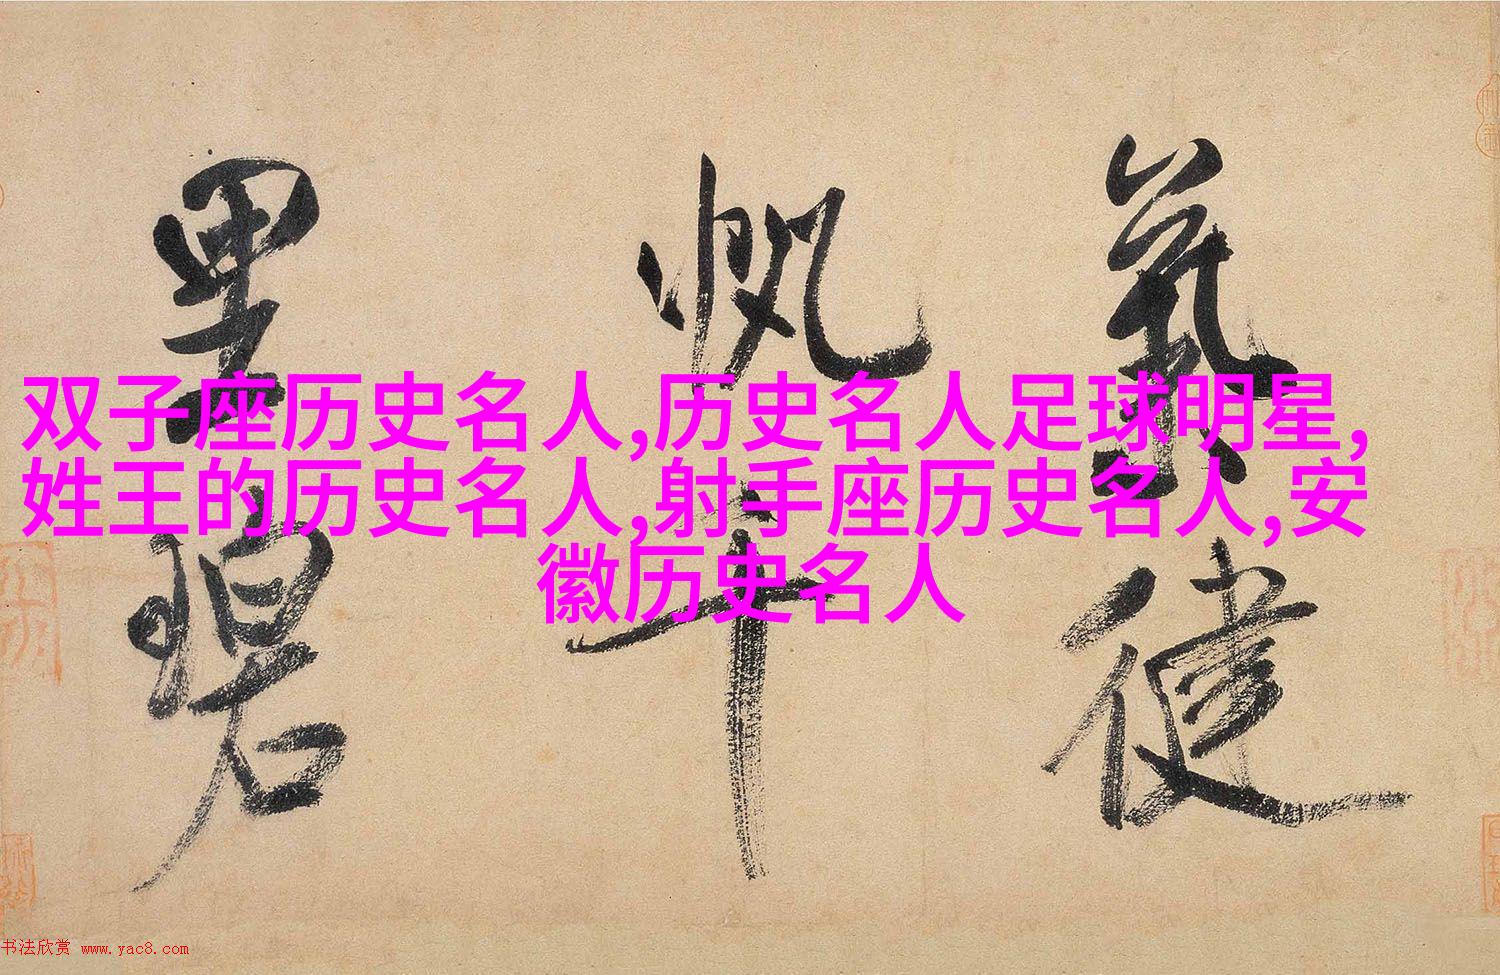 氣健
帆千
里碧
双子座历史名人,历史名人足球明星,
姓王的历史名人,射手座历史名人,安
徽历史名人
书法欣赏 www.yac8.com